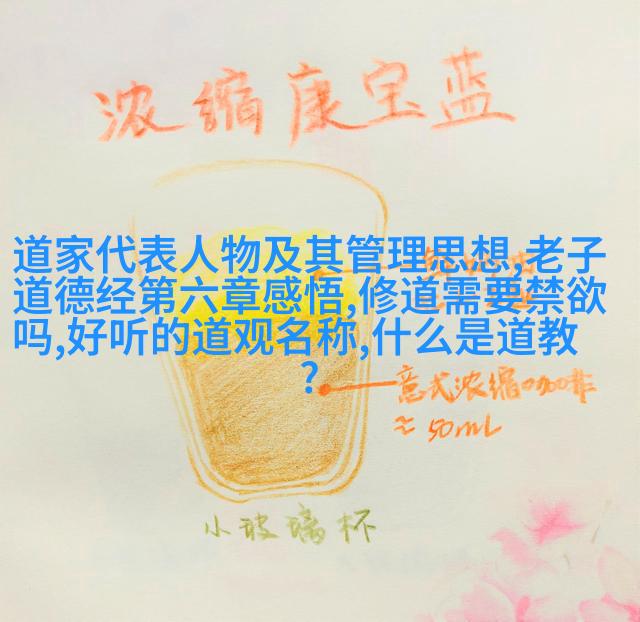 浓缩康宝蓝
道家代表人物及其管理思想,老子
道德经第六章感悟,修道需要禁欲
吗,好听的道观名称,什么是道教
?
意式浓缩咖啡
≈50mL
小玻璃杯